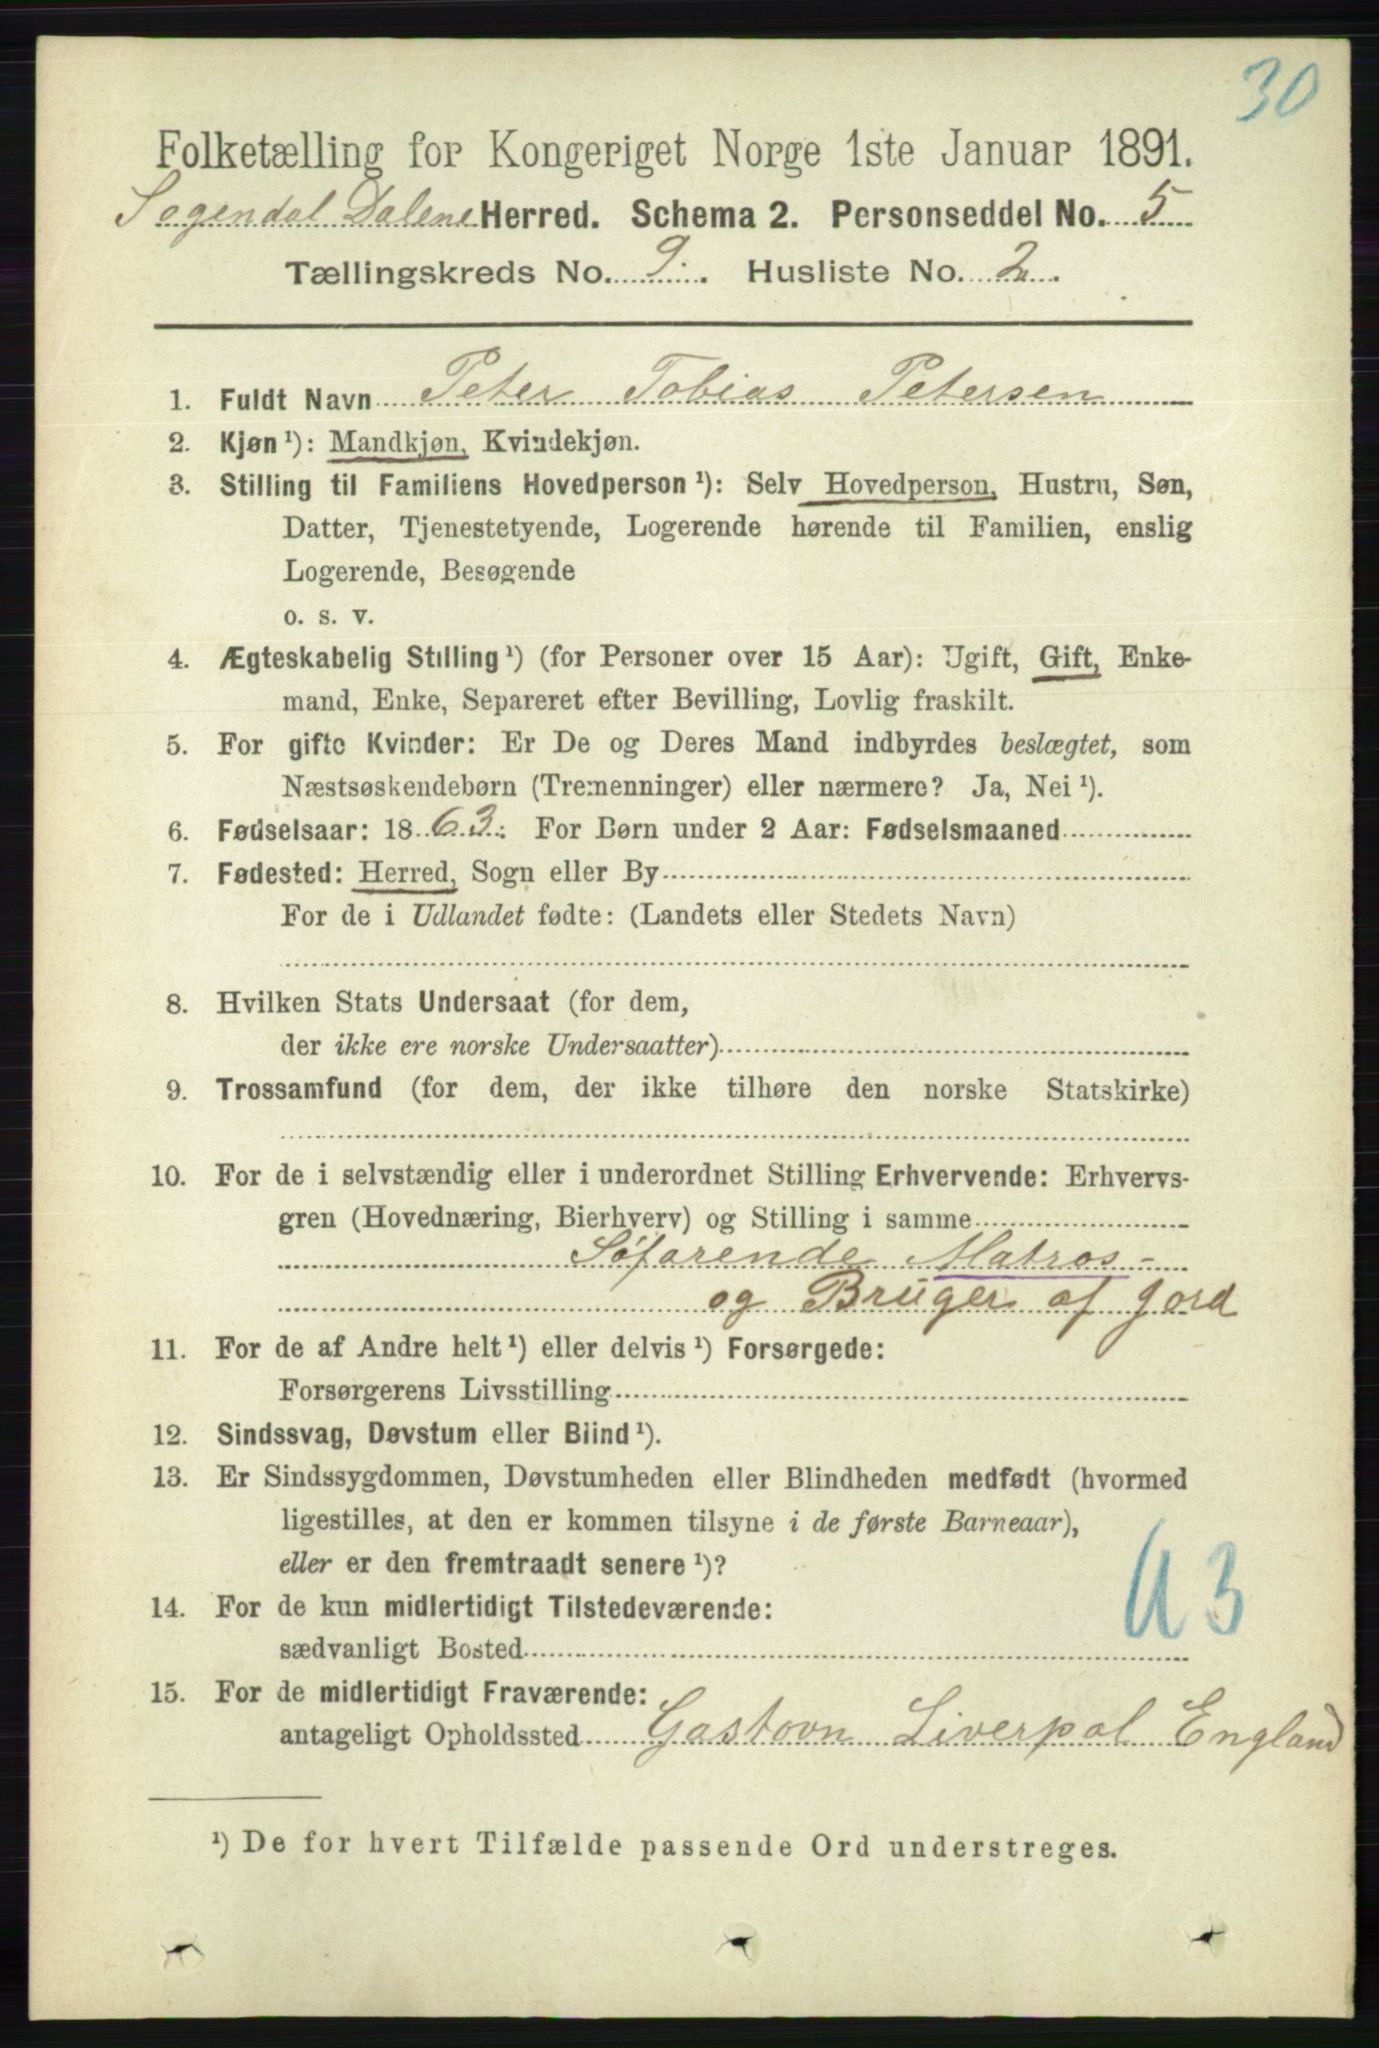 30
Folketælling for Kongeriget Norge 1ste Januar 1891.
Sogendal Dalene Herred. Schema 2. Personseddel No. 5
Tællingskreds No. 9. Husliste No. 2.
1. Fuldt Navn Peter Tobias Petersen
2. Kjøn ¹): Mandkjøn, Kvindekjøn.
3. Stilling til Familiens Hovedperson ¹): Selv Hovedperson, Hustru, Søn,
Datter, Tjenestetyende, Logerende hørende til Familien, enslig
Logerende, Besøgende
o. s. v.
4. Ægteskabelig Stilling ¹) (for Personer over 15 Aar): Ugift, Gift, Enke-
mand, Enke, Separeret efter Bevilling, Lovlig fraskilt.
5. For gifte Kvinder: Er De og Deres Mand indbyrdes beslægtet, som
Næstsøskendebørn (Tremenninger) eller nærmere? Ja, Nei ¹).
6. Fødselsaar: 1863. For Børn under 2 Aar: Fødselsmaaned
7. Fødested: Herred, Sogn eller By
For de i Udlandet fødte: (Landets eller Stedets Navn)
8. Hvilken Stats Undersaat (for dem,
der ikke ere norske Undersaatter)
9. Trossamfund (for dem, der ikke tilhøre den norske Statskirke)
10. For de i selvstændig eller i underordnet Stilling Erhvervende: Erhvervs-
gren (Hovednæring, Bierhverv) og Stilling i samme
Søfarende Matros -
og Bruger af Jord
11. For de af Andre helt ¹) eller delvis ¹) Forsørgede:
Forsørgerens Livsstilling
12. Sindssvag, Døvstum eller Blind ¹).
13. Er Sindssygdommen, Døvstumheden eller Blindheden medfødt (hvormed
ligestilles, at den er kommen tilsyne i de første Barneaar),
eller er den fremtraadt senere ¹)?
14. For de kun midlertidigt Tilstedeværende:
sædvanligt Bosted
U3
15. For de midlertidigt Fraværende:
antageligt Opholdssted Gastovn Liverpol England
¹) De for hvert Tilfælde passende Ord understreges.